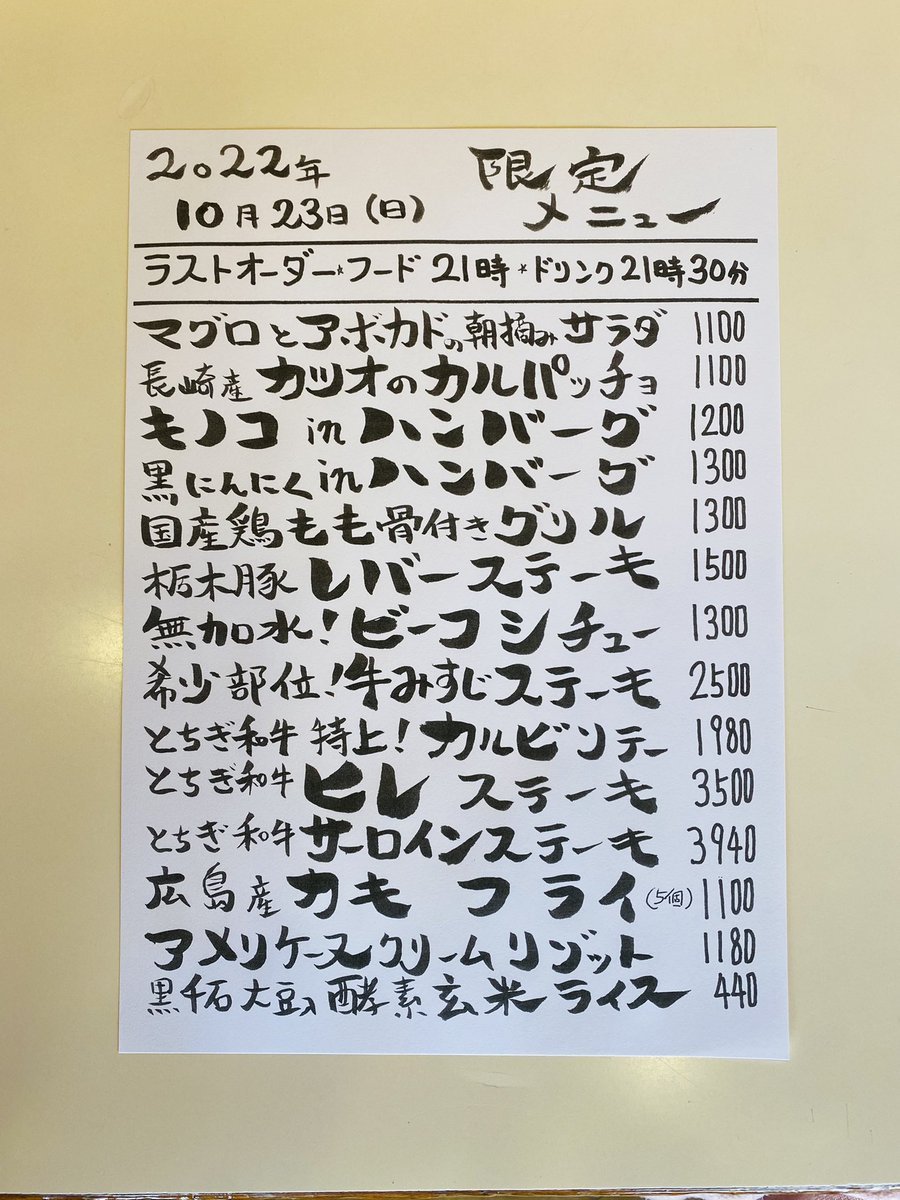 2022年 限定
10月23日(日) メニュー
ラストオーダー*フード 21時 *ドリンク21時30分
マグロとアボカドの朝摘みサラダ 1100
長崎産 カツオのカルパッチョ 1100
キノコ in ハンバーグ 1200
黒にんにくin ハンバーグ 1300
国産鶏もも骨付きグリル 1300
栃木豚 レバーステーキ 1500
無加水!ビーフシチュー 1300
希少部位!牛みすじステーキ 2500
とちぎ和牛 特上!カルビソテー 1980
とちぎ和牛 ヒレ ステーキ 3500
とちぎ和牛 サーロインステーキ 3940
広島産 カキ フライ(5個) 1100
アメリケーヌクリームリゾット 1180
黒千石大豆入酵素玄米ライス 440